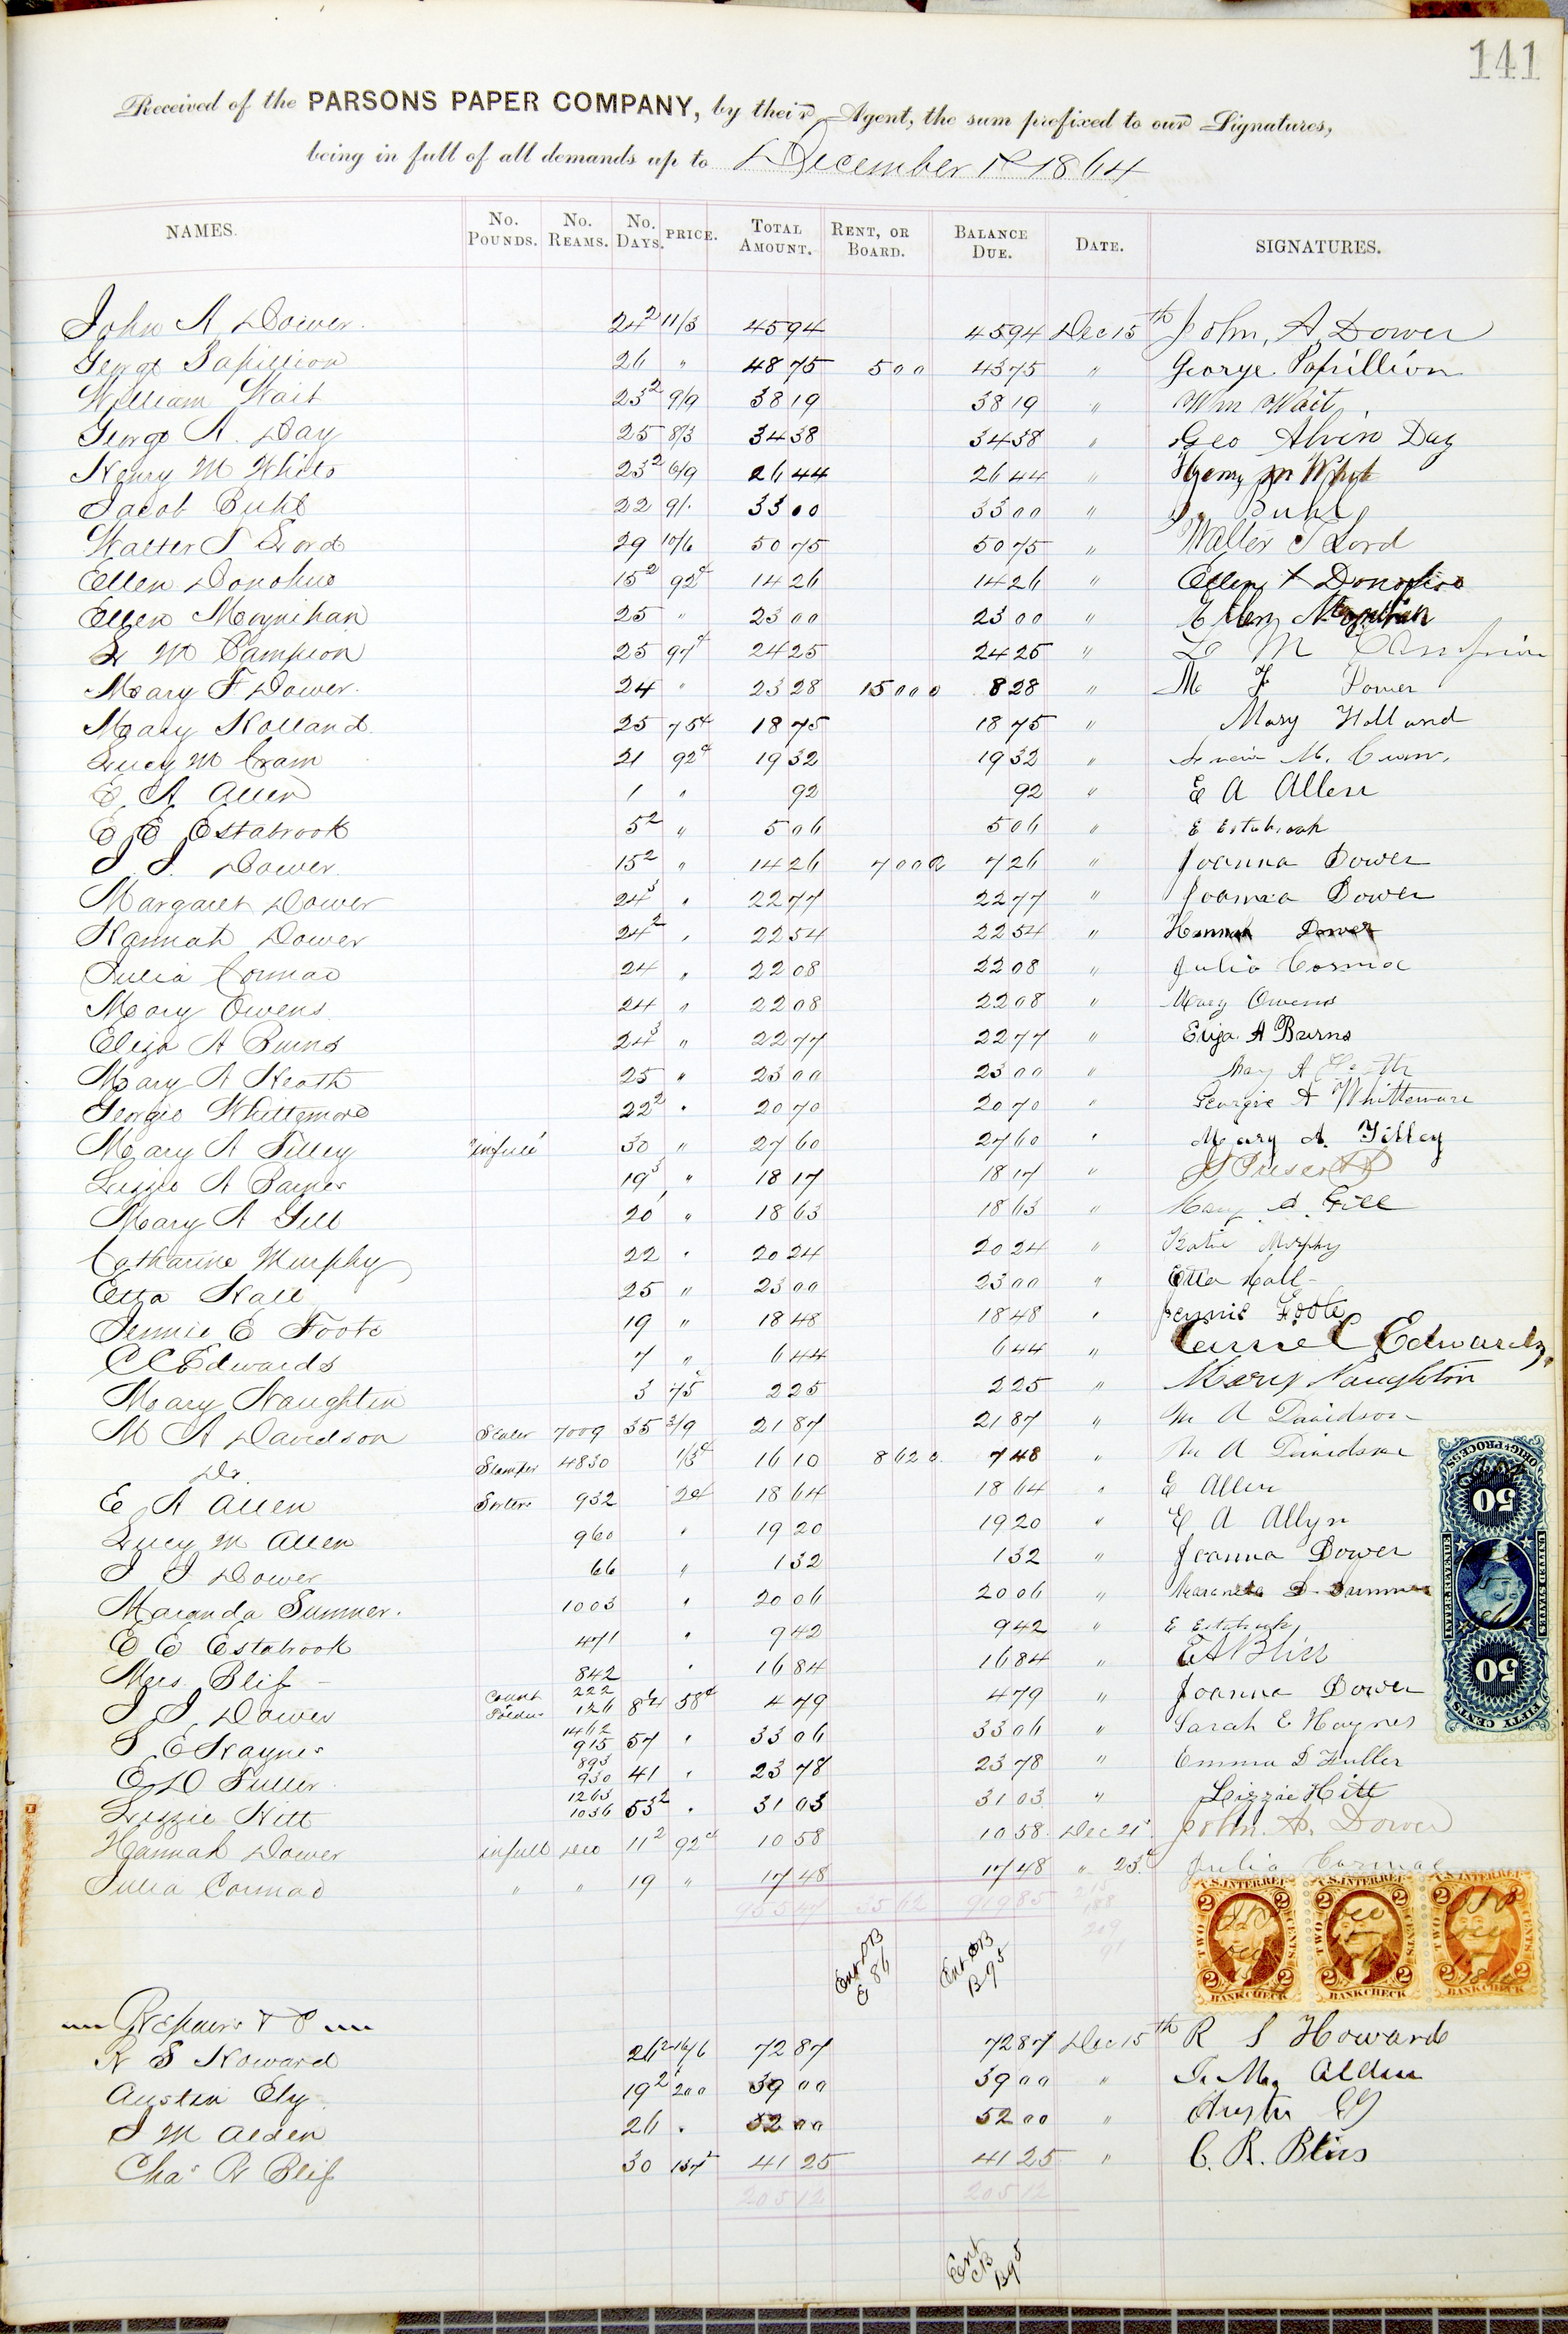 141
Received of the PARSONS PAPER COMPANY, by their Agent, the sum prefixed to our Signatures,
being in full of all demands up to December 1st 1864
NAMES. No. POUNDS. No. REAMS. No. DAYS. PRICE. TOTAL AMOUNT. RENT, OR BOARD. BALANCE DUE. DATE. SIGNATURES.
John A Dower 24 2 11/3 45 94 45 94 Dec 15th John A Dower
George Papillion 26 " 48 75 5 00 43 75 " George Papillion
William Wait 23 2 9/9 38 19 38 19 " Wm Wait
George A. Day 25 8/3 34 38 34 38 " Geo Alvin Day
Henry M White 23 2 6/9 26 44 26 44 " Henry M White
Jacob Buhl 22 9/. 33 00 33 00 " Buhl
Walter T Lord 29 10/6 50 75 50 75 " Walter T Lord
Ellen Donohue 15 2 92c 14 26 14 26 " Ellen X Donohue
Ellen Moynihan 25 " 23 00 23 00 " Ellen Moynihan
L M Campion 25 97c 24 25 24 25 " L M Campion
Mary F Dower 24 " 23 28 15 00 8 28 " M F Dower
Mary Holland 25 75c 18 75 18 75 " Mary Holland
Lucy M Cram 21 92c 19 32 19 32 " M. Cram
E A Allen 1 " 92 92 " E A Allen
E E Estabrook 5 2 " 5 06 5 06 " E Estabrook
J. J. Dower 15 2 " 14 26 7 00 7 26 " Joanna Dower
Margaret Dower 24 3 " 22 77 22 77 " Joanna Dower
Hannah Dower 24 2 " 22 54 22 54 " Hannah Dower
Julia Cormac 24 " 22 08 22 08 " Julia Cormac
Mary Owens 24 " 22 08 22 08 " Mary Owens
Eliza A Burns 24 3 " 22 77 22 77 " Eliza A Burns
Mary A Heath 25 " 23 00 23 00 " Mary A Heath
Georgie Whittemore 22 2 " 20 70 20 70 " Georgie A Whittemore
Mary A Tilley "infull" 30 " 27 60 27 60 " Mary A. Tilley
Lizzie A Barnes 19 3 " 18 17 18 17 " Prescott
Mary A Gill 20 1 " 18 63 18 63 " Mary A. Gill
Catharine Murphy 22 " 20 24 20 24 " Katie Murphy
Etta Hall 25 " 23 00 23 00 " Etta Hall
Jennie E Foote 19 " 18 48 18 48 " Jennie Foote
C C Edwards 7 " 6 44 6 44 " Carrie C Edwards
Mary Naughtin 3 75c 2 25 2 25 " Mary Naughton
M A Davidson Sealer 7009 35 3/9 21 87 21 87 " M A Davidson
Do. Stamper 4830 1/3c 16 10 8 62 7 48 " M A Davidson
E A Allen Sorters 932 2c 18 64 18 64 " E Allen
Lucy M Allen 960 " 19 20 19 20 " E A Allyn
J J Dower 66 " 1 32 1 32 " Joanna Dower
Maranda Sumner. 1003 " 20 06 20 06 " Maranda D. Sumner
E E Estabrook 471 " 9 42 9 42 " E Estabrook
Mrs. Blifs 842 " 16 84 16 84 " E A Bliss
J J Dower Count Folders 222 126 8 1/4 58c 4 79 4 79 " Joanna Dower
S E Haynes 1462 915 57 " 33 06 33 06 " Sarah E Haynes
E D Fuller 893 930 41 " 23 78 23 78 " Emma D Fuller
Lizzie Hitt 1263 1036 53 2 " 31 03 31 03 " Lizzie Hitt
Hannah Dower infull Dec 11 2 92c 10 58 10 58 Dec 21 John. A. Dower
Julia Cormac " " 19 " 17 48 17 48 " 23. Julia Cormac
955 47 35 62 919 85
Ent DB E 86
Ent CB B 95
Repairs & C
R S Howard 26 2 16/6 72 87 72 87 Dec 15th R S Howard
Austin Ely 19 2 200 39 00 39 00 " Alden
J M Alden 26 " 52 00 52 00 " Austin Ely
Chas R Blifs 30 137 1/2 41 25 41 25 " C. R. Bliss
205 12 205 12
Ent CB B 95
ORIG. PROCESS
50
UNITED STATES
INTER. REVENUE
50
FIFTY CENTS
U.S. INTER. REV.
TWO CENTS
2 2
BANK CHECK
U.S. INTER. REV.
TWO CENTS
2 2
BANK CHECK
U.S. INTER. REV.
TWO CENTS
2 2
BANK CHECK